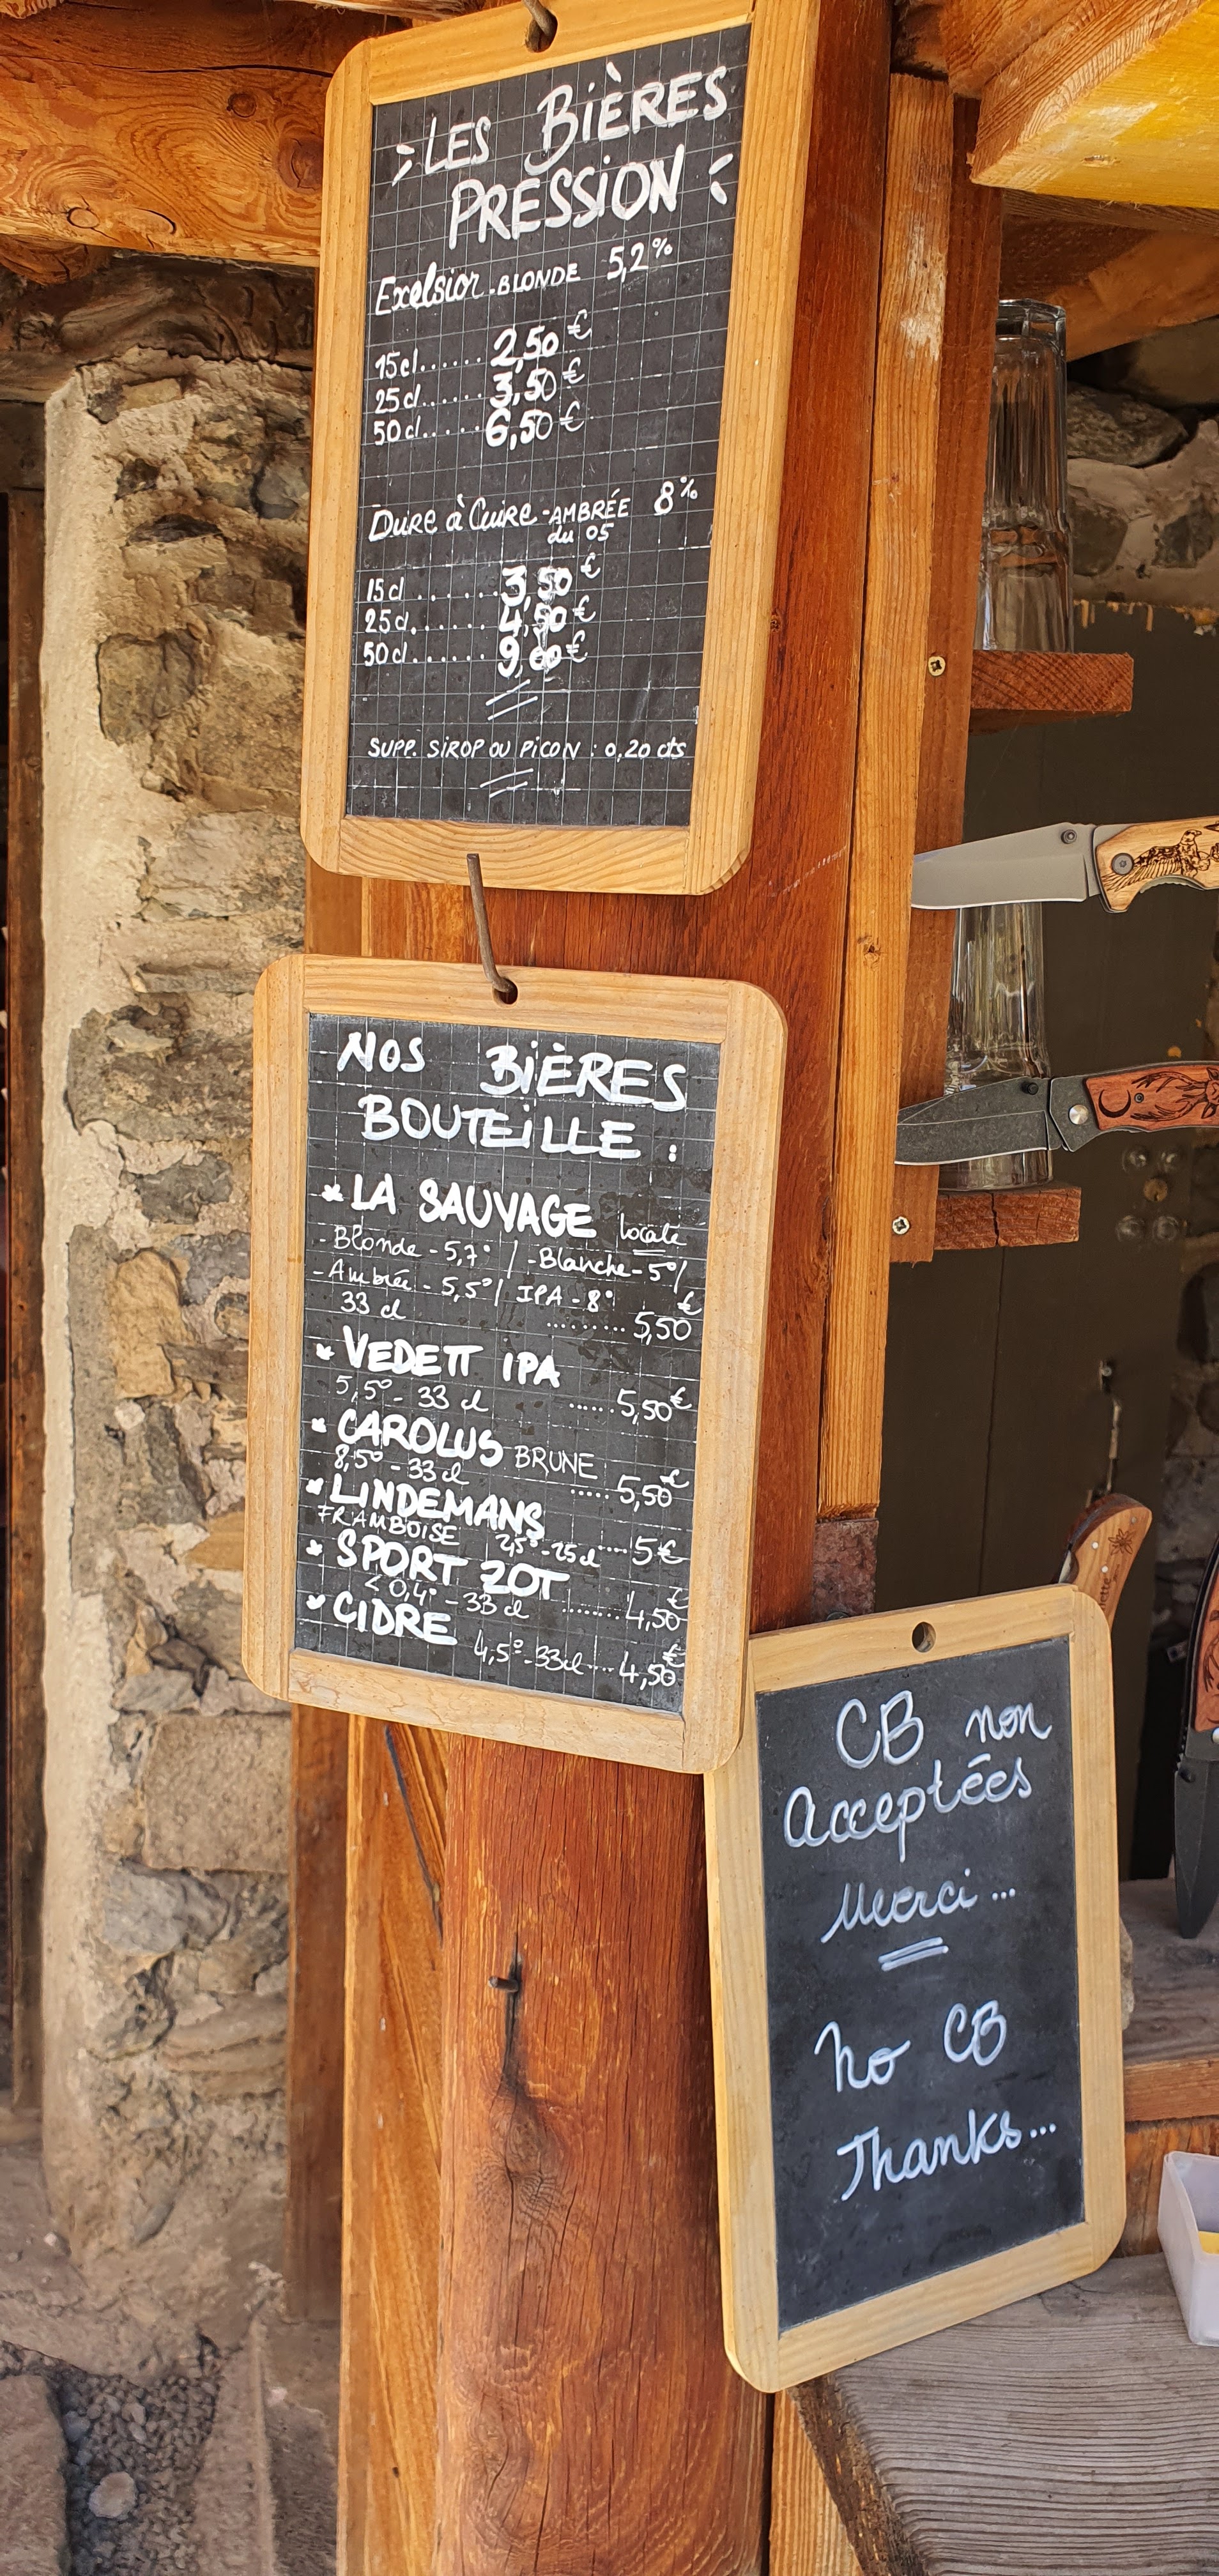 LES BIÈRES
PRESSION
Exelsior - BLONDE 5,2%
15cl...... 2,50€
25cl...... 3,50€
50cl..... 6,50€
Dure à Cuire - AMBRÉE 8%
du 05
15cl....... 3,50€
25cl....... 4,50€
50cl...... 9,00€
SUPP. SIROP OU PICON : 0,20 cts
NOS BIÈRES
BOUTEILLE :
* LA SAUVAGE locale
- Blonde - 5,7° / - Blanche - 5° /
- Ambrée - 5,5° / IPA - 8°
33 cl ......... 5,50€
* VEDETT IPA
5,5° - 33 cl ...... 5,50€
* CAROLUS BRUNE
8,5° - 33 cl ..... 5,50€
* LINDEMANS
FRAMBOISE 2,5° - 25cl .... 5€
* SPORT ZOT
<0,4° - 33 cl ........ 4,50€
* CIDRE
4,5° - 33cl .... 4,50€
CB non
Acceptées
Merci...
No CB
Thanks...